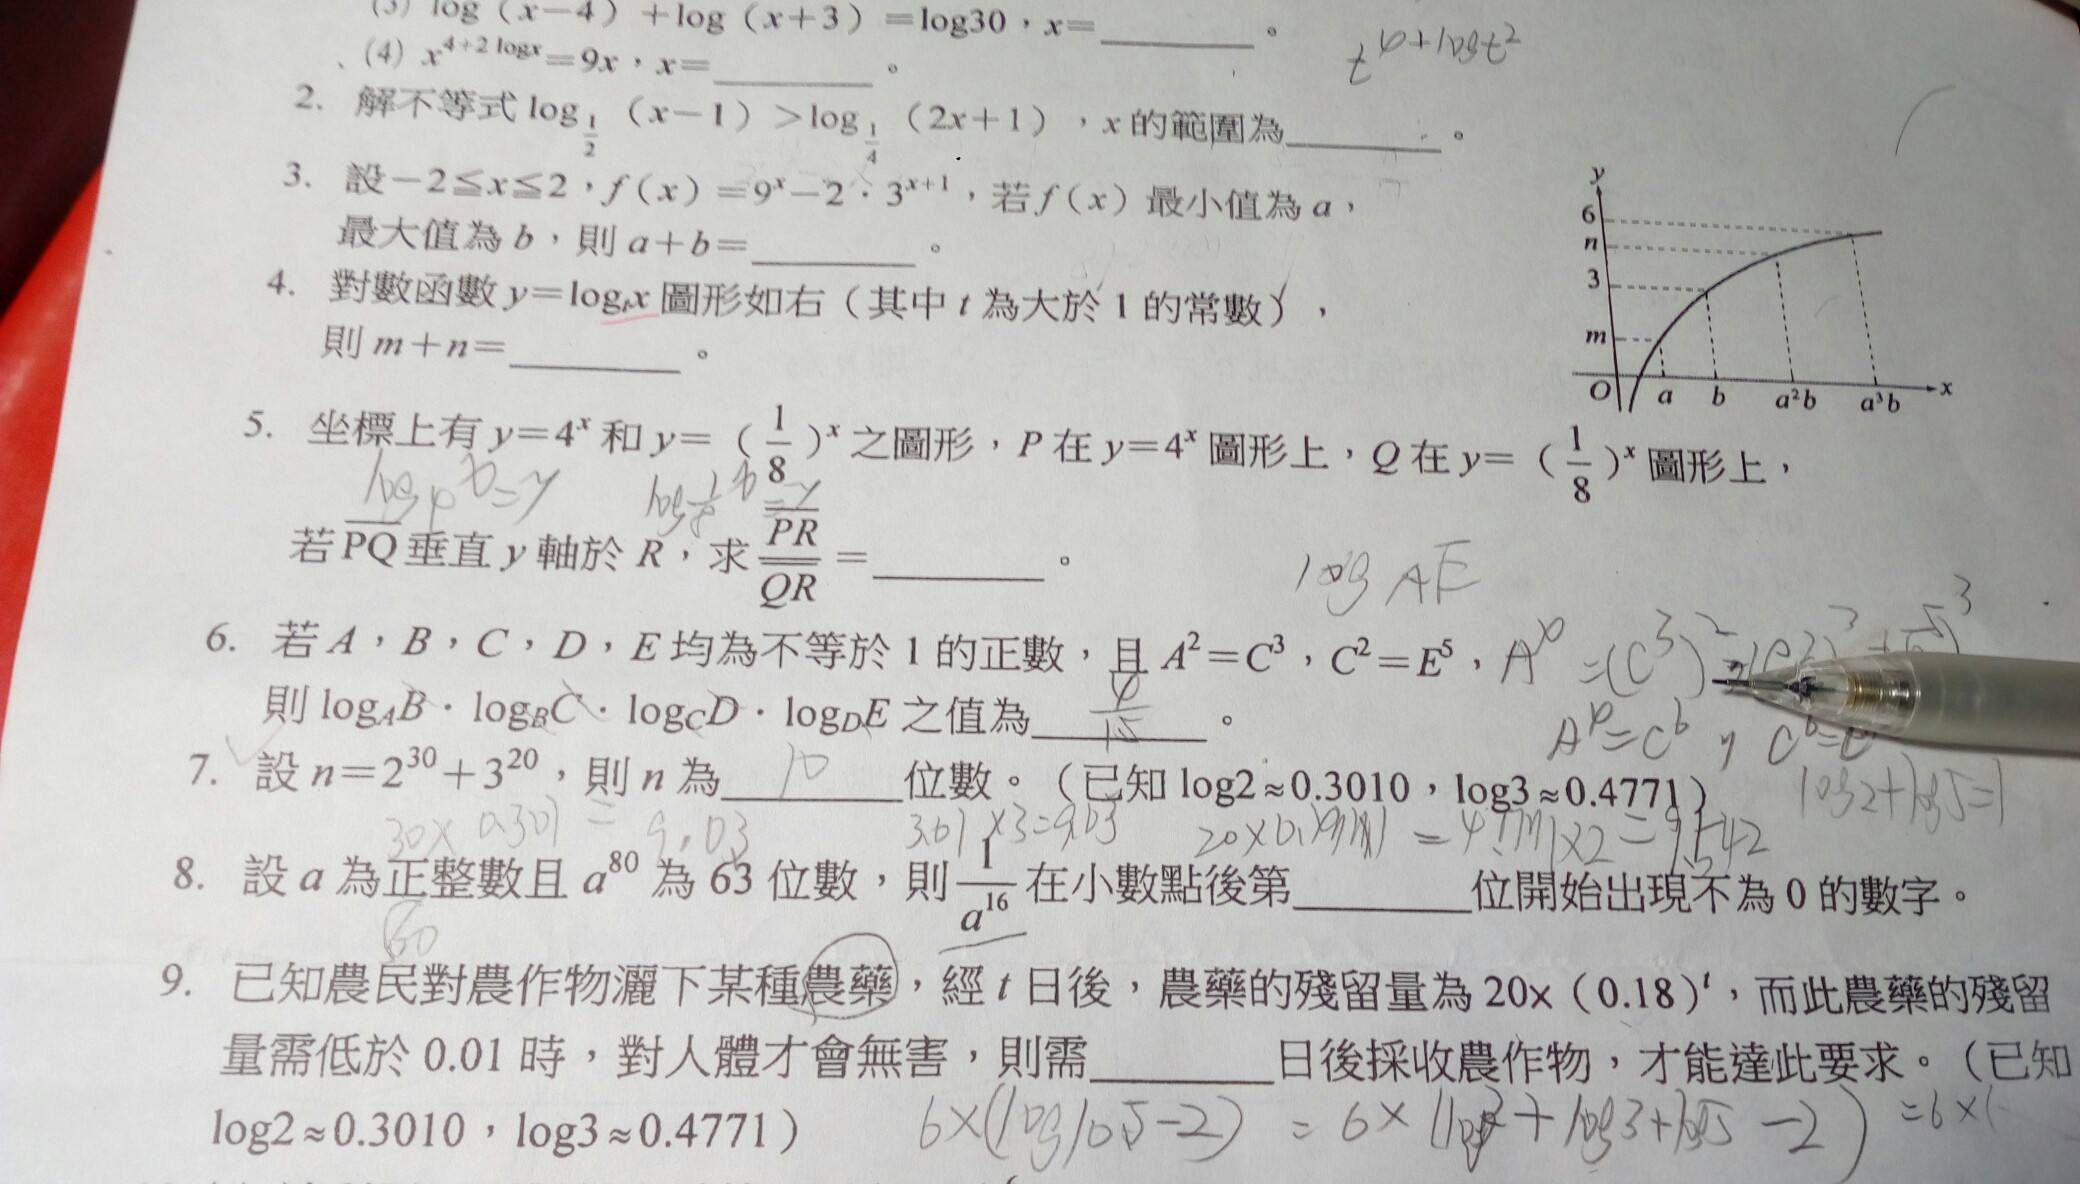 (3) log（x－4）＋log（x＋3）＝log30，x＝________。
(4) x^{4+2 logx}＝9x，x＝________。
t^{4+logt^2}
2. 解不等式 log_{1/2}（x－1）＞log_{1/4}（2x＋1），x 的範圍為________。
3. 設－2≦x≦2，f（x）＝9^x－2．3^{x+1}，若 f（x）最小值為 a，
最大值為 b，則 a＋b＝________。
4. 對數函數 y＝log_t x 圖形如右（其中 t 為大於 1 的常數），
則 m＋n＝________。
y
6
n
3
m
O a b a²b a³b x
5. 坐標上有 y＝4^x 和 y＝（1/8）^x 之圖形，P 在 y＝4^x 圖形上，Q 在 y＝（1/8）^x 圖形上，
若 PQ 垂直 y 軸於 R，求 PR/QR＝________。
log AE
6. 若 A，B，C，D，E 均為不等於 1 的正數，且 A²＝C³，C²＝E⁵，
則 log_A B．log_B C．log_C D．log_D E 之值為 4/15 。
7. 設 n＝2^{30}＋3^{20}，則 n 為 10 位數。（已知 log2≈0.3010，log3≈0.4771）
log2+log5=1
30×0.301= 9.03 3.01×3=9.03
8. 設 a 為正整數且 a^{80} 為 63 位數，則 1/a^{16} 在小數點後第________位開始出現不為 0 的數字。
9. 已知農民對農作物灑下某種農藥，經 t 日後，農藥的殘留量為 20×（0.18）^t，而此農藥的殘留
量需低於 0.01 時，對人體才會無害，則需________日後採收農作物，才能達此要求。（已知
log2≈0.3010，log3≈0.4771）